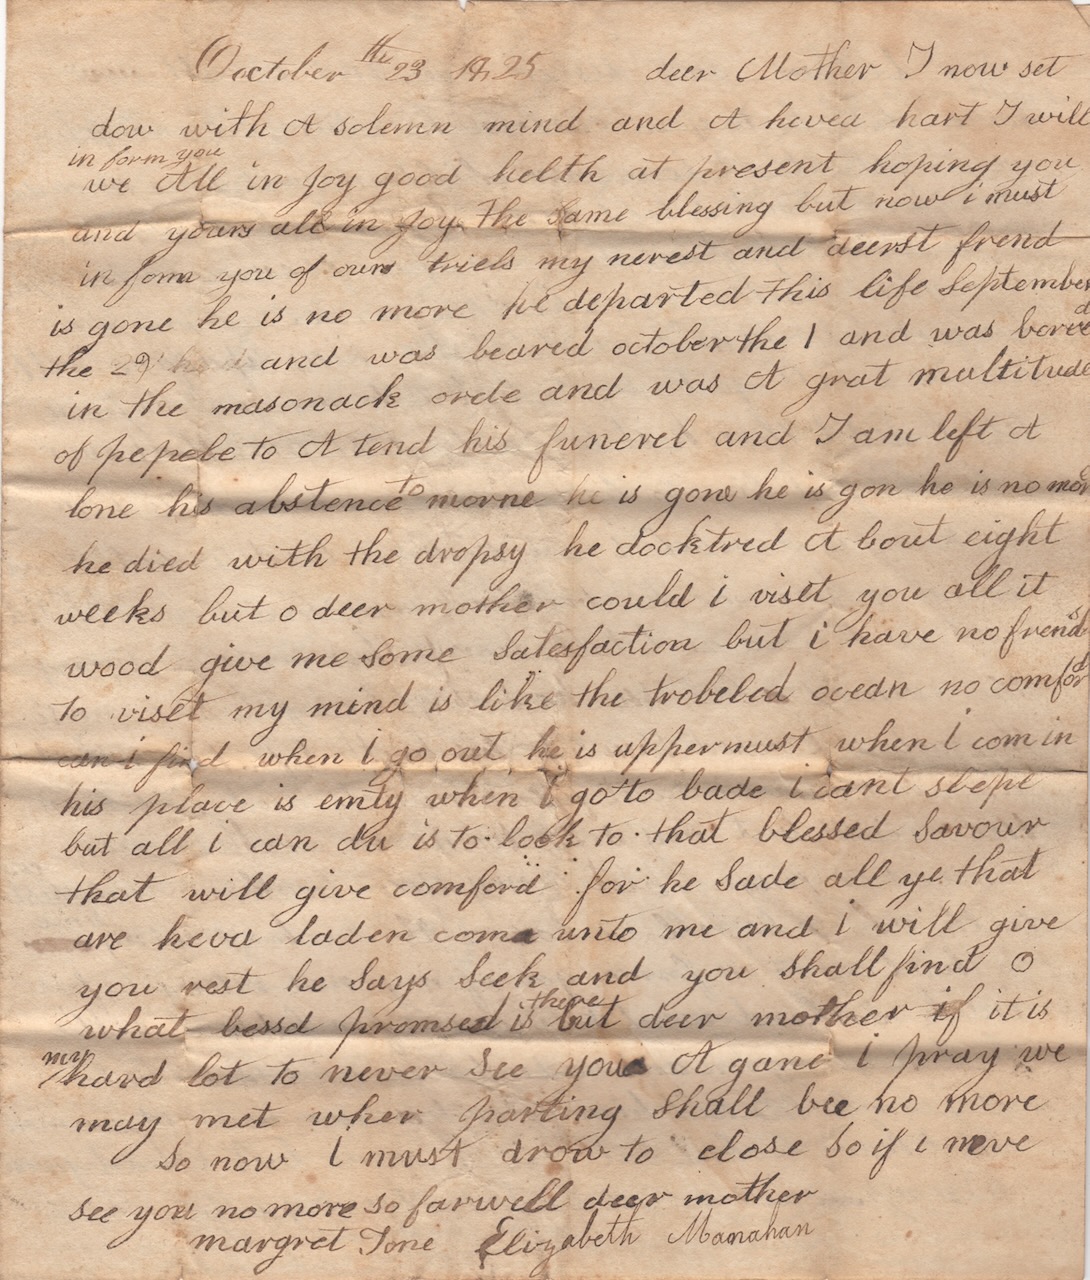 October the 23 1825 deer Mother I now set
dow with A solemn mind and A hevea hart I will
in form you
we All in joy good helth at present hoping you
and yours all in joy the same blessing but now i must
in form you of ours triels my nerest and deerst frend
is gone he is no more he departed this life September
the 29 and was beared october the 1 and was
in the masonack orde and was A grat multitude
of pepele to A tend his funerel and I am left A
lone his abstence to morne he is gone he is gon he is no more
he died with the dropsy he docktred A bout eight
weeks but o deer mother could i viset you all it
wood give me some satesfaction but i have no frends
to viset my mind is like the trobeled ocean no comford
can i find when i go out he is uppermust when i com in
his place is emty when i go to bade i cant slepe
but all i can du is to look to that blessed savour
that will give comford for he sade all ye that
are heva laden come unto me and i will give
you rest he says seek and you shall find O
what bessd promsed is there but deer mother if it is
my hard lot to never see you A gane i pray we
may met wher parting shall bee no more
so now i must drow to close so if i neve
see you no more so farwell deer mother
margret Tone Elizabeth Manahan